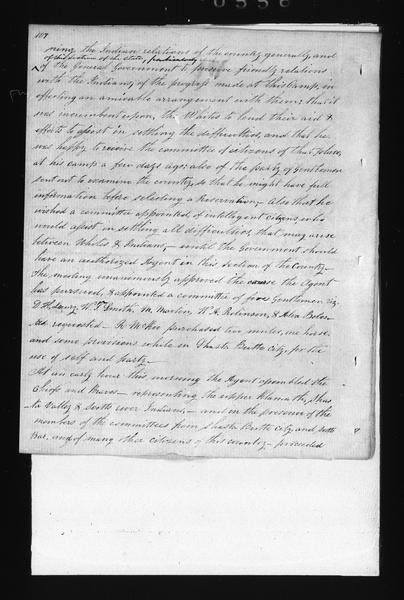 107
ning the Indian relations of the country generally, and
of this section of the state, particularly
of the General Government to preserve friendly relations
with the Indians, of the progress made at this camp, in
effecting an amicable arrangement with them; that it
was incumbent upon, the Whites to lend their aid &
efforts to assist in settling the difficulties, and that he
was happy to receive the committee of citizens of that place,
at his camp a few days ago: also of the party of Gentlemen
sent out to examine the country, so that he might have full
information before selecting a Reservation,– Also that he
wished a committee appointed of intelligent citizens who
would assist in settling all difficulties, that may arise
between Whites & Indians,– until the Government should
have an authorized Agent in this section of the Country–
The meeting unanimously approved the course the Agent
has pursued, & appointed a committee of five Gentlemen viz.
W. T. Smith, M. Martin, W. A. Robinson, &
as requested– R. McKee purchased two mules, one horse,
and some provisions while in Shasta Butte City, for the
use of self and party–
At an early hour this, morning the Agent assembled the
Chiefs and Braves – representing the upper Klamath, Shas-
ta Valley & Scotts river Indians,– and in the presence of the
members of the committees from Shasta Butte City, and Scotts
Bar, and of many other citizens of this country– proceeded